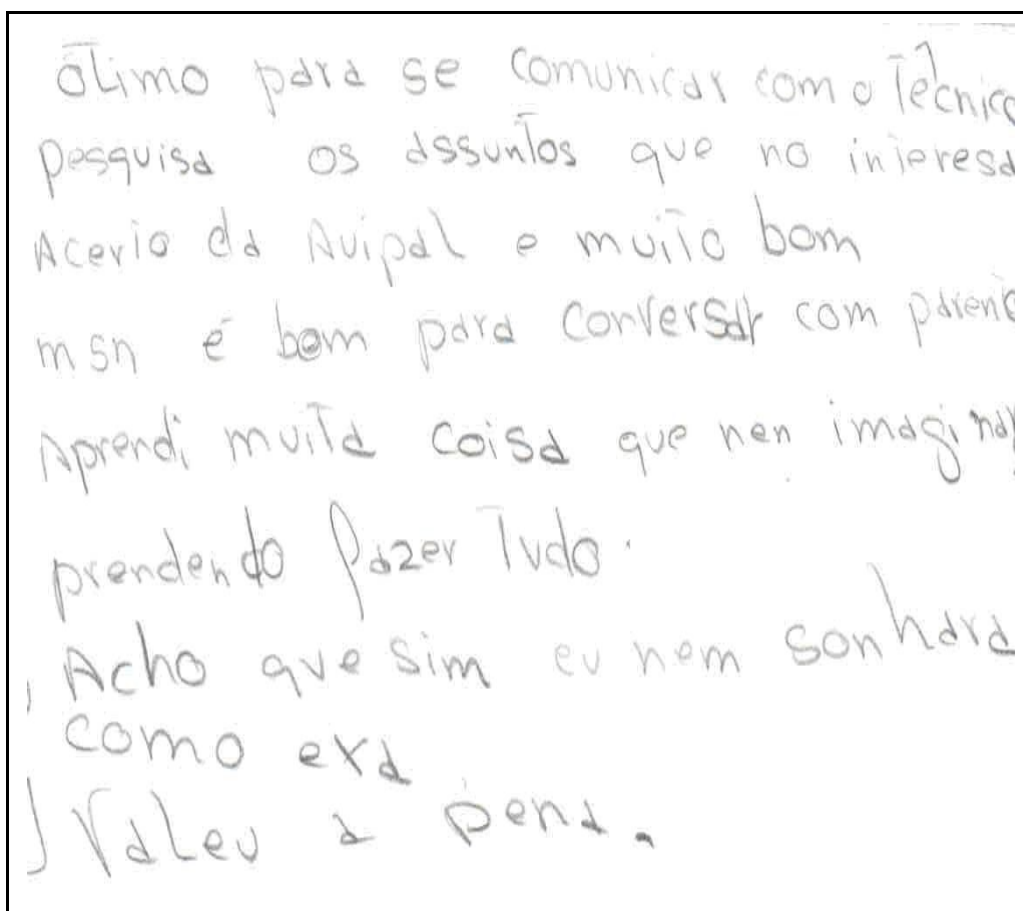 ótimo para se comunicar com o Técnico
pesquisa os assuntos que no interesa
Acerio da Avipal e muito bom
msn é bom para conversar com parent
Aprendi muita coisa que nen imagina
prendendo fazer Tudo.
Acho que sim eu nem sonhara
como era
Valeu a pena.